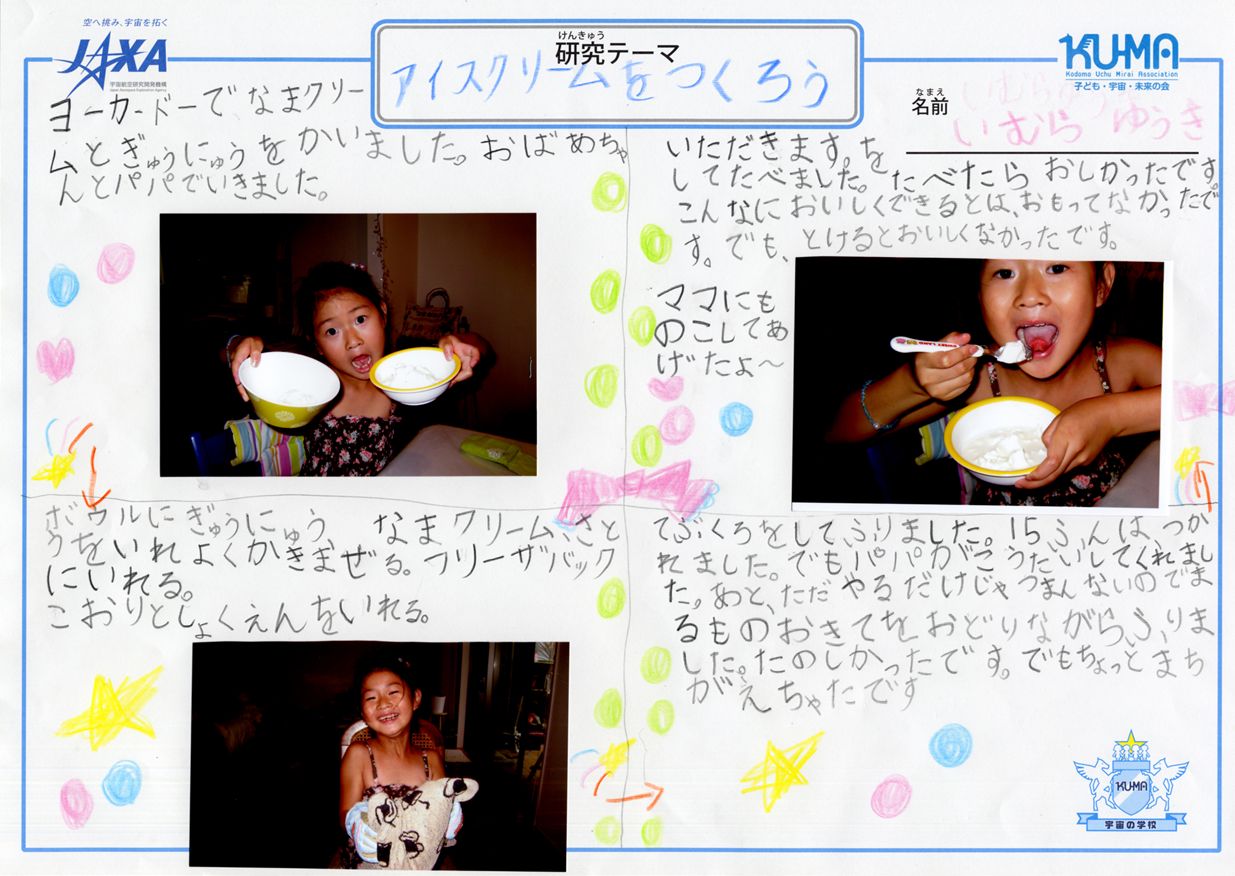 空へ挑み、宇宙を拓く
JAXA
宇宙航空研究開発機構
Japan Aerospace Exploration Agency
けんきゅう
研究テーマ
アイスクリームをつくろう
KU-MA
Kodomo Uchu Mirai Association
子ども・宇宙・未来の会
なまえ
名前
いむら ゆうき
ヨーカードーでなまクリー
ムとぎゅうにゅうをかいました。おばめちゃ
んとパパでいきました。
ボウルにぎゅうにゅう、なまクリーム、さと
うをいれよくかきまぜる。フリーザバック
にいれる。
こおりとしょくえんをいれる。
てぶくろをしてふりました。15ふんは、つか
れました。でもパパがこうたいしてくれまし
た。あと、ただやるだけじゃつまんないのでま
るものおきてをおどりながらふりま
した。たのしかったです。でもちょっとまち
がえちゃたです
いただきます。を
してたべました。たべたらおしかったです。
こんなにおいしくできるとは、おもってなかったで
す。でも、とけるとおいしくなかったです。
ママにも
のこしてあ
げたよ〜
KU-MA
宇宙の学校